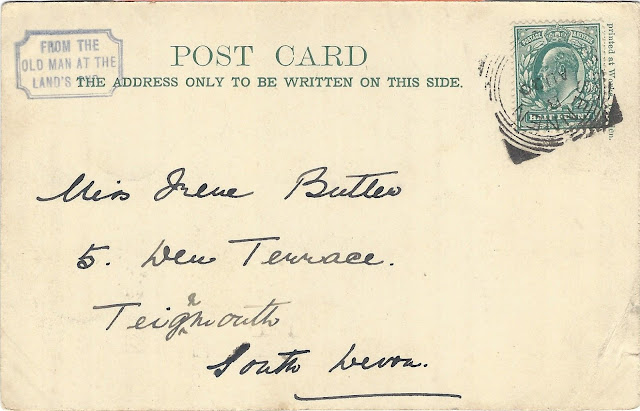 FROM THE
OLD MAN AT THE
LAND'S END
POST CARD
THE ADDRESS ONLY TO BE WRITTEN ON THIS SIDE.
POSTAGE REVENUE
HALFPENNY
AU
printed at
Miss Irene Butler
5. Den Terrace.
Teignmouth
South Devon.